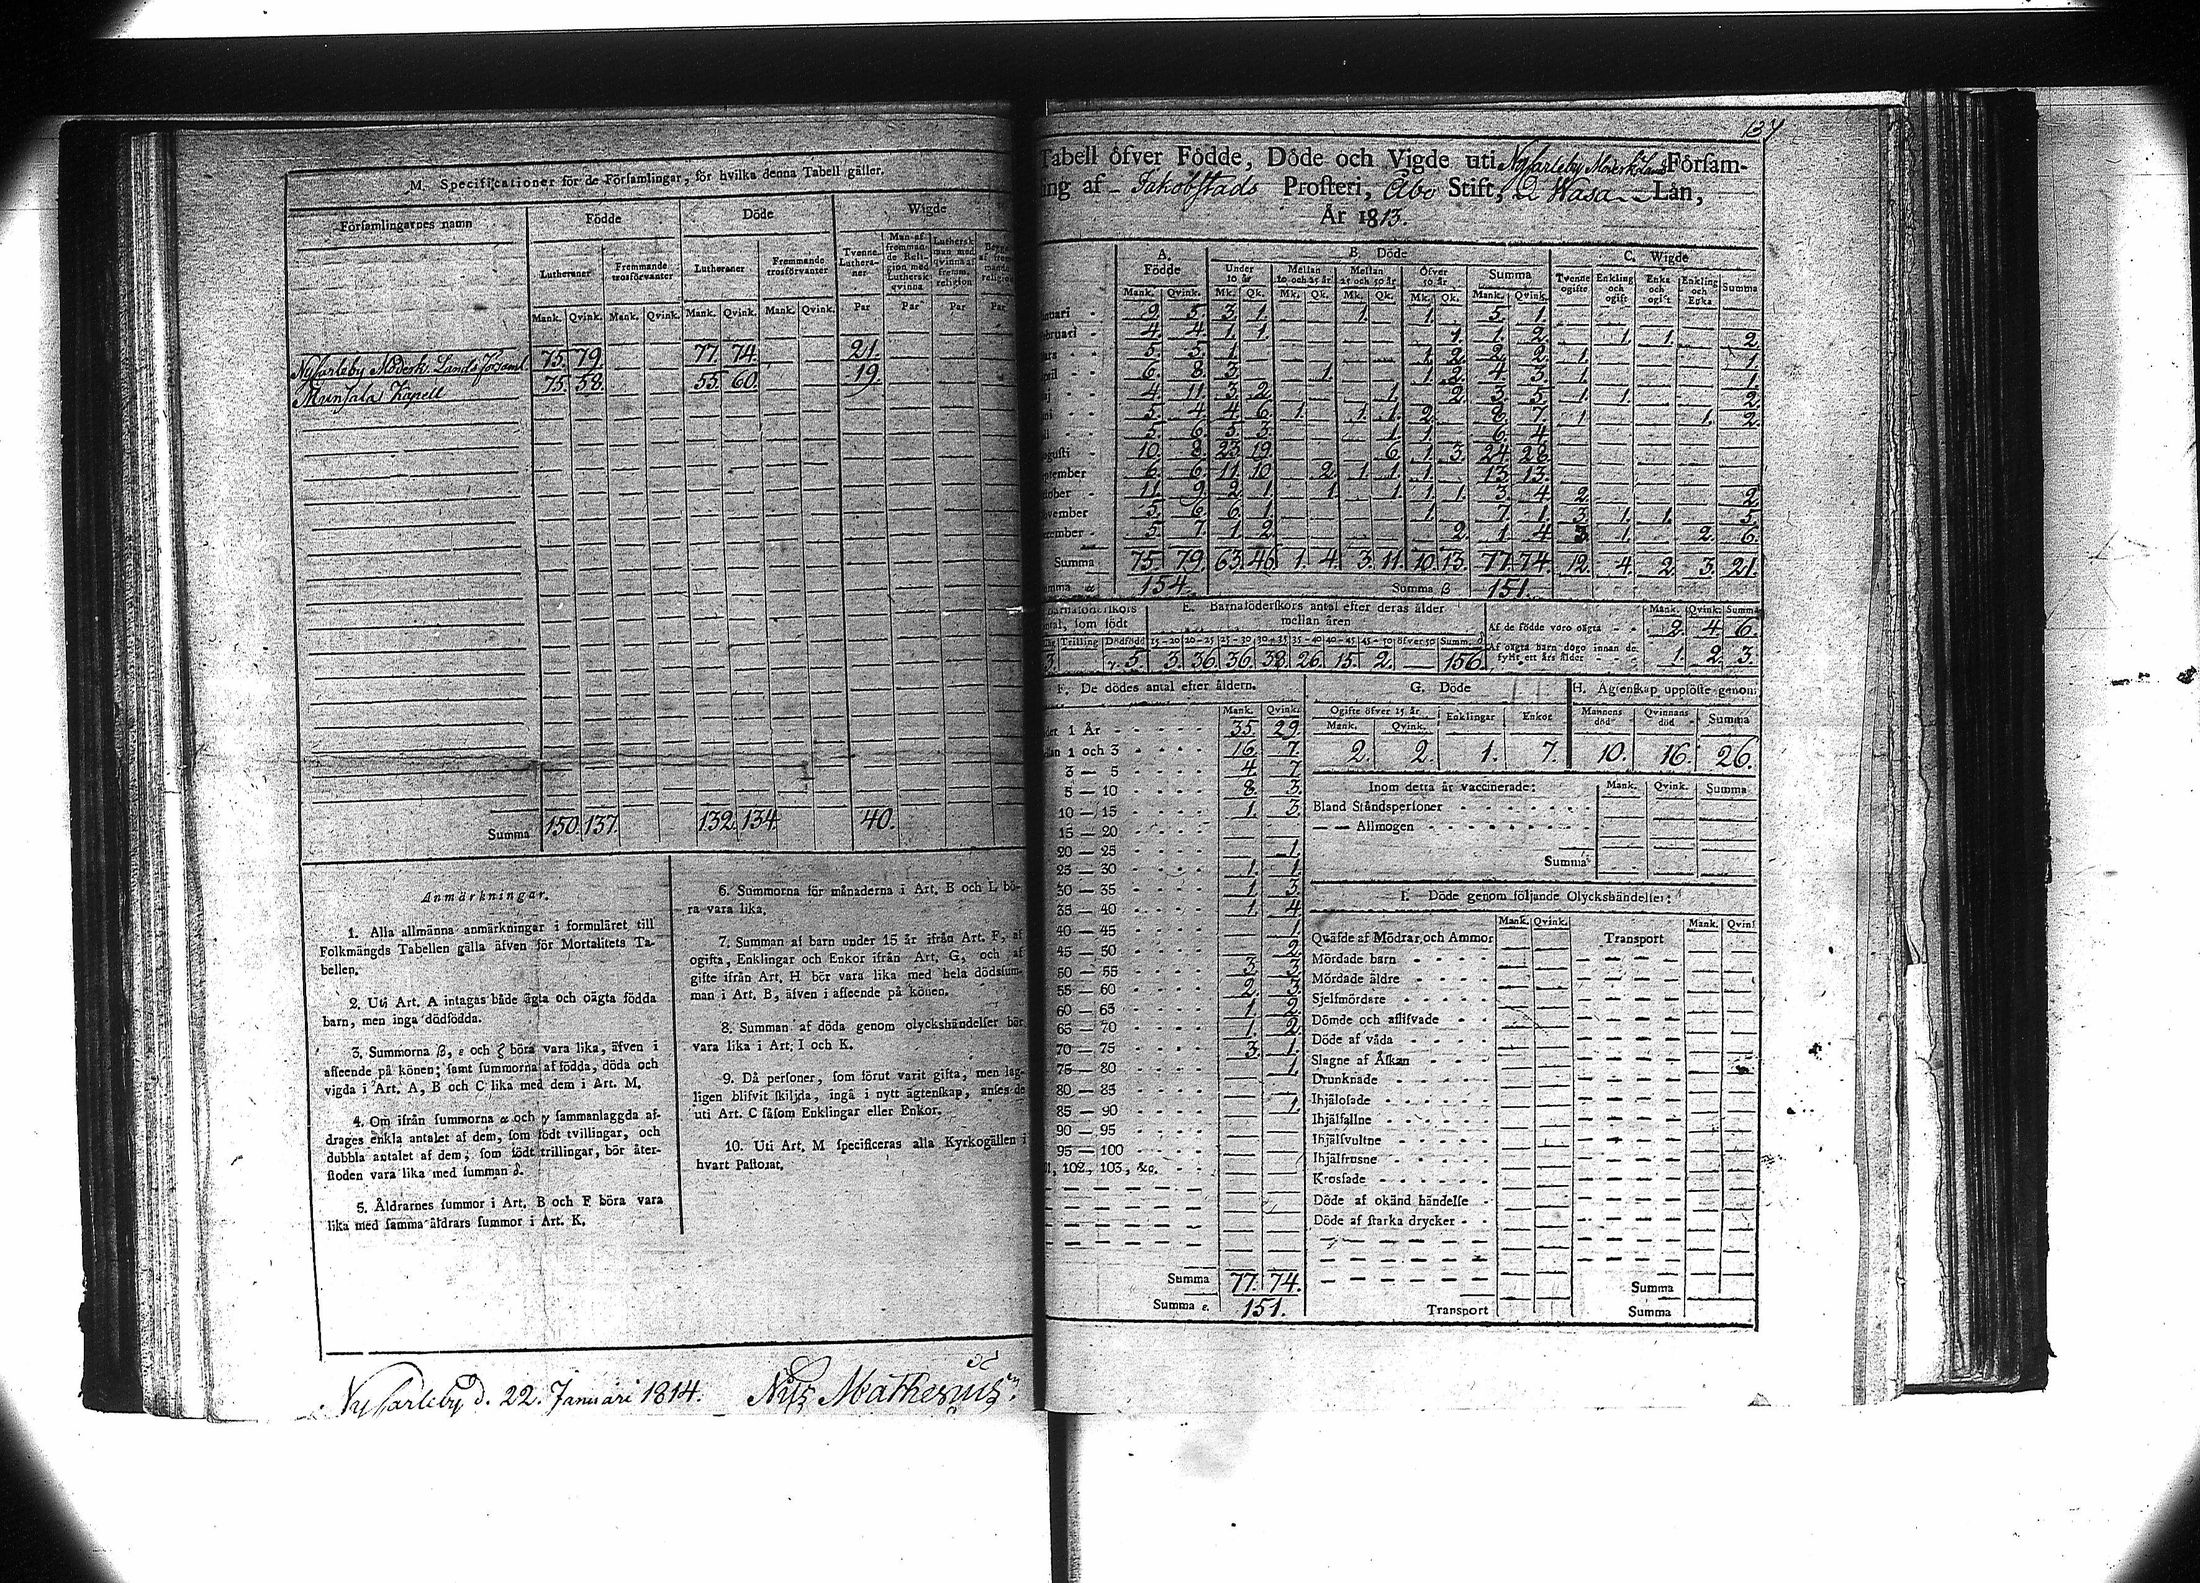 M. Specificationer för de Församlingar, för hvilka denna Tabell gäller.
Församlingarnes namn | Födde | Döde | Wigde
Lutheraner | Fremmande trosförvanter | Lutheraner | Fremmande trosförvanter | Tvenne Lutheraner | Man af fremmande Religion med Luthersk qvinna | Luthersk man med qvinna af fremm. religion
Mank. Qvink. Mank. Qvink. Mank. Qvink. Mank. Qvink. Par Par Par Par
Nykarleby Moderk. Lands Församl. 75. 79. 77. 74. 21.
Munsala Kapell 75. 58. 55. 60. 19.
Summa 150. 137. 132. 134. 40.
Anmärkningar.
1. Alla allmänna anmärkningar i formuläret till
Folkmängds Tabellen gälla äfven för Mortalitets Ta-
bellen.
2. Uti Art. A intagas både ägta och oägta födda
barn, men inga dödfödda.
3. Summorna β, ε och ζ böra vara lika, äfven i
afseende på könen; samt summorna af födda, döda och
vigda i Art. A, B och C lika med dem i Art. M.
4. Om ifrån summorna α och γ sammanlaggda af-
drages enkla antalet af dem, som födt tvillingar, och
dubbla antalet af dem, som födt trillingar, bör åter-
stoden vara lika med summan δ.
5. Åldrarnes summor i Art. B och F böra vara
lika med samma åldrars summor i Art. K.
6. Summorna för månaderna i Art. B och L bö-
ra vara lika.
7. Summan af barn under 15 år ifrån Art. F, af
ogifta, Enklingar och Enkor ifrån Art. G, och af
gifte ifrån Art. H bör vara lika med hela dödssum-
man i Art. B, äfven i afseende på könen.
8. Summan af döda genom olyckshändelser bör
vara lika i Art. I och K.
9. Då personer, som förut varit gifta, men lag-
ligen blifvit skiljda, ingå i nytt ägtenskap, anses de
uti Art. C såsom Enklingar eller Enkor.
10. Uti Art. M specificeras alla Kyrkogällen i
hvart Pastorat.
Nykarleby d. 22. Januari 1814.
137
Tabell öfver Födde, Döde och Vigde uti Nykarleby Moderk. Lands Försam-
ing af Jakobstads Prosteri, Åbo Stift, Wasa Län,
År 1813.
A. Födde | B. Döde | C. Wigde
Under 10 år | Mellan 10 och 25 år | Mellan 25 och 50 år | Öfver 50 år | Summa | Tvenne ogifte | Enkling och ogift | Enka och ogift | Enkling och Enka | Summa
Mank. Qvink. Mk. Qk. Mk. Qk. Mk. Qk. Mk. Qk. Mank. Qvink.
anuari 9. 5. 3. 1. 1. 1. 5. 1.
ebruari 4. 4. 1. 1. 1. 1. 2. 1. 1. 2.
ars 5. 5. 1. 1. 2. 2. 2. 1. 1.
pril 6. 8. 3. 1. 1. 2. 4. 3. 1. 1.
aj 4. 11. 3. 2. 1. 2. 3. 5. 1. 1. 2.
ni 5. 4. 4. 6. 1. 1. 1. 2. 8. 7. 1. 1. 2.
li 5. 6. 5. 3. 1. 1. 6. 4.
ugusti 10. 8. 23. 19. 6. 1. 3. 24. 28.
eptember 6. 6. 11. 10. 2. 1. 1. 1. 13. 13.
ktober 11. 9. 2. 1. 1. 1. 1. 1. 3. 4. 2. 2.
ovember 5. 6. 6. 1. 1. 7. 1. 3. 1. 1. 5.
ecember 5. 7. 1. 2. 2. 1. 4. 3. 1. 2. 6.
Summa 75. 79. 63. 46. 1. 4. 3. 11. 10. 13. 77. 74. 12. 4. 2. 3. 21.
umma α 154. Summa β 151.
E. Barnaföderskors antal efter deras ålder
mellan åren
Trilling Dödfödd 15-20 20-25 25-30 30-35 35-40 40-45 45-50 öfver 50 Summa δ
3. γ 5. 3. 36. 36. 38. 26. 15. 2. 156.
Mank. Qvink. Summa
Af de födde voro oägta 2. 4. 6.
Af oägta barn dogo innan de
fyllt ett års ålder 1. 2. 3.
F. De dödes antal efter åldern.
Mank. Qvink.
1 År 35. 29.
1 och 3 16. 7.
3 — 5 4. 7.
5 — 10 8. 3.
10 — 15 1. 3.
15 — 20
20 — 25 1.
25 — 30 1. 1.
30 — 35 1. 3.
35 — 40 1. 4.
40 — 45 1.
45 — 50 2.
50 — 55 3. 3.
55 — 60 2. 3.
60 — 65 1. 2.
65 — 70 1. 2.
70 — 75 3. 1.
75 — 80 1.
80 — 85
85 — 90 1.
90 — 95
95 — 100
102, 103, &c.
Summa 77. 74.
Summa ε. 151.
G. Döde
Ogifte öfver 15 år | Enklingar | Enkor
Mank. Qvink.
2. 2. 1. 7.
H. Ägtenskap upplöste genom
Mannens död | Qvinnans död | Summa
10. 16. 26.
Inom detta år vaccinerade: Mank. Qvink. Summa
Bland Ståndspersoner
— — Allmogen
Summa
I. Döde genom följande Olyckshändelser:
Mank. Qvink. Mank. Qvink
Qväfde af Mödrar och Ammor Transport
Mördade barn
Mördade äldre
Sjelfmördare
Dömde och aflifvade
Döde af våda
Slagne af Åskan
Drunknade
Ihjälosade
Ihjälfallne
Ihjälsvultne
Ihjälfrusne
Krossade
Döde af okänd händelse
Döde af starka drycker
Summa
Transport Summa